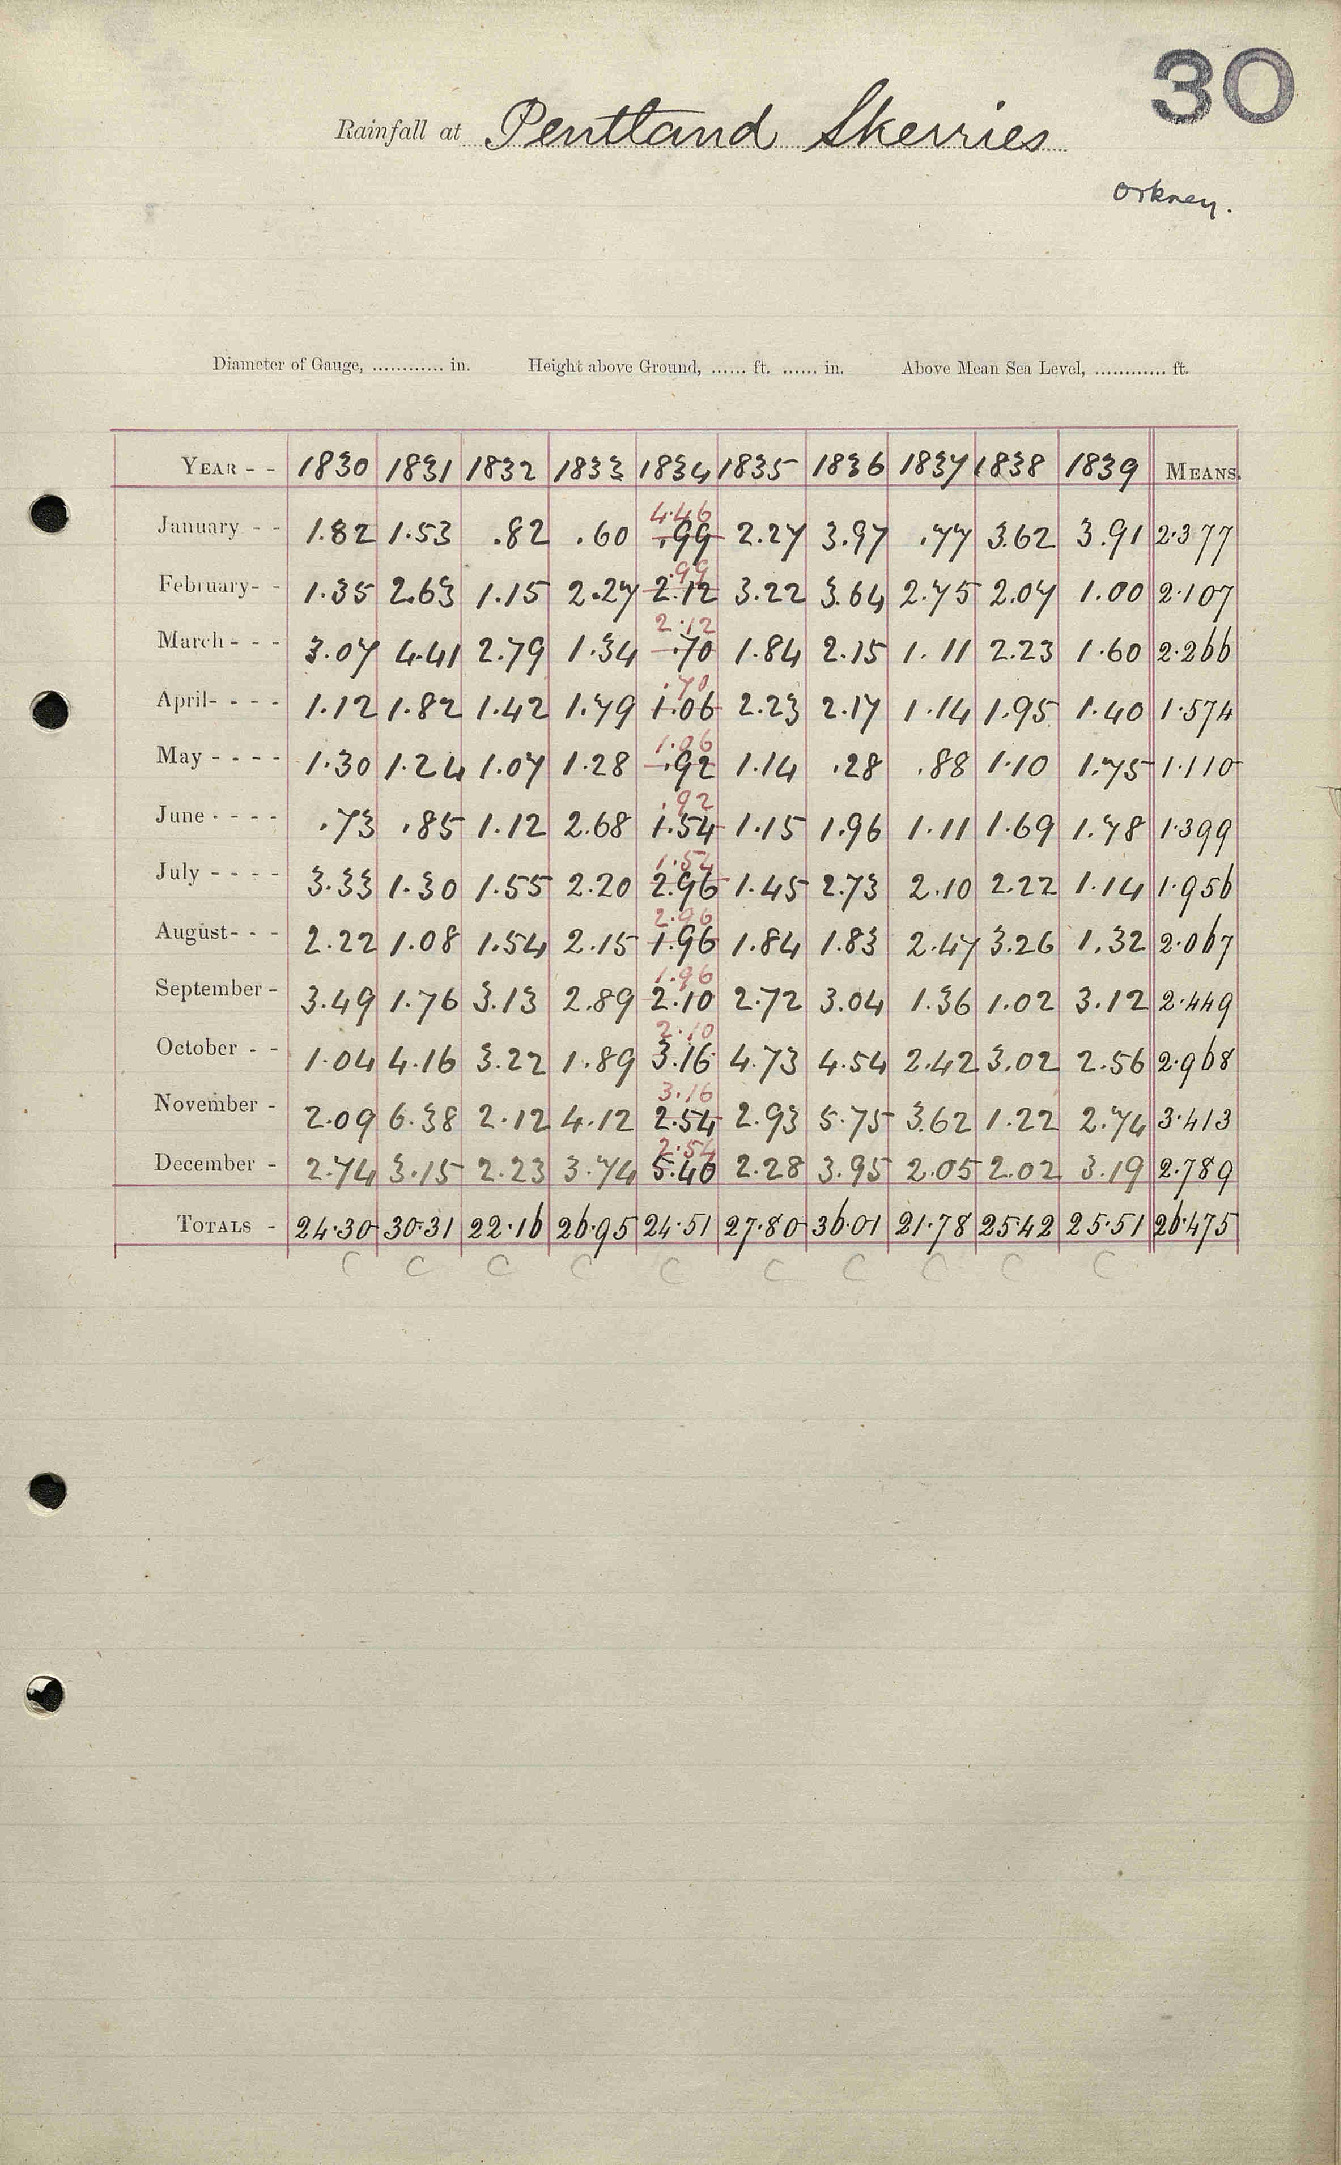 30
Rainfall at Pentland Skerries
Orkney.
Diameter of Gauge, ............ in. Height above Ground, ...... ft. ...... in. Above Mean Sea Level, ............ ft.
YEAR - - 1830 1831 1832 1833 1834 1835 1836 1837 1838 1839 MEANS.
4.46
January - - 1.82 1.53 .82 .60 .99 2.27 3.97 .77 3.62 3.91 2.377
.99
February- - 1.35 2.63 1.15 2.27 2.12 3.22 3.64 2.75 2.07 1.00 2.107
2.12
March - - - 3.07 4.41 2.79 1.34 .70 1.84 2.15 1.11 2.23 1.60 2.266
.70
April- - - - 1.12 1.82 1.42 1.79 1.06 2.23 2.17 1.14 1.95 1.40 1.574
1.06
May - - - - 1.30 1.24 1.07 1.28 .92 1.14 .28 .88 1.10 1.75 1.110
.92
June - - - - .73 .85 1.12 2.68 1.54 1.15 1.96 1.11 1.69 1.78 1.399
1.54
July - - - - 3.33 1.30 1.55 2.20 2.96 1.45 2.73 2.10 2.22 1.14 1.956
2.96
August- - - 2.22 1.08 1.54 2.15 1.96 1.84 1.83 2.47 3.26 1.32 2.067
1.96
September - 3.49 1.76 3.13 2.89 2.10 2.72 3.04 1.36 1.02 3.12 2.449
2.10
October - - 1.04 4.16 3.22 1.89 3.16 4.73 4.54 2.42 3.02 2.56 2.968
3.16
November - 2.09 6.38 2.12 4.12 2.54 2.93 5.75 3.62 1.22 2.74 3.413
2.54
December - 2.74 3.15 2.23 3.74 5.40 2.28 3.95 2.05 2.02 3.19 2.789
TOTALS - 24.30 30.31 22.16 26.95 24.51 27.80 36.01 21.78 25.42 25.51 26.475
C C C C C C C C C C